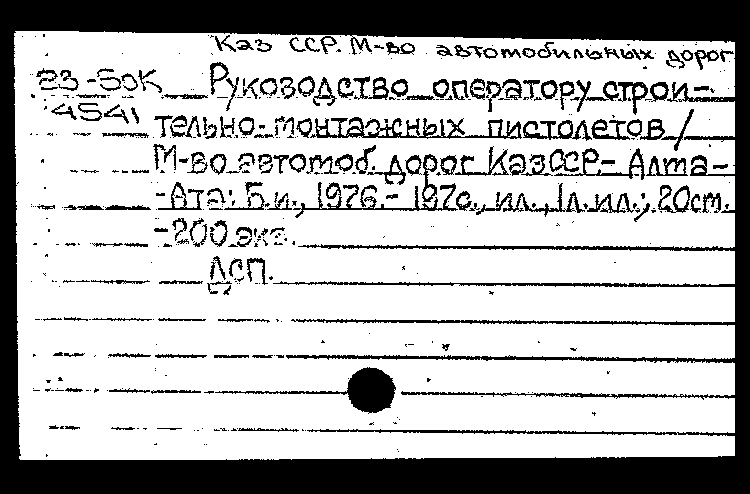 Каз ССР. М-во автомобильных дорог
23-50К Руководство оператору строи-
4541 тельно-монтажных пистолетов /
М-во автомоб. дорог КазССР.- Алма-
-Ата: Б.и., 1976.- 197с., ил., 1л. ил.; 20см.
-200 экз.
ДСП.